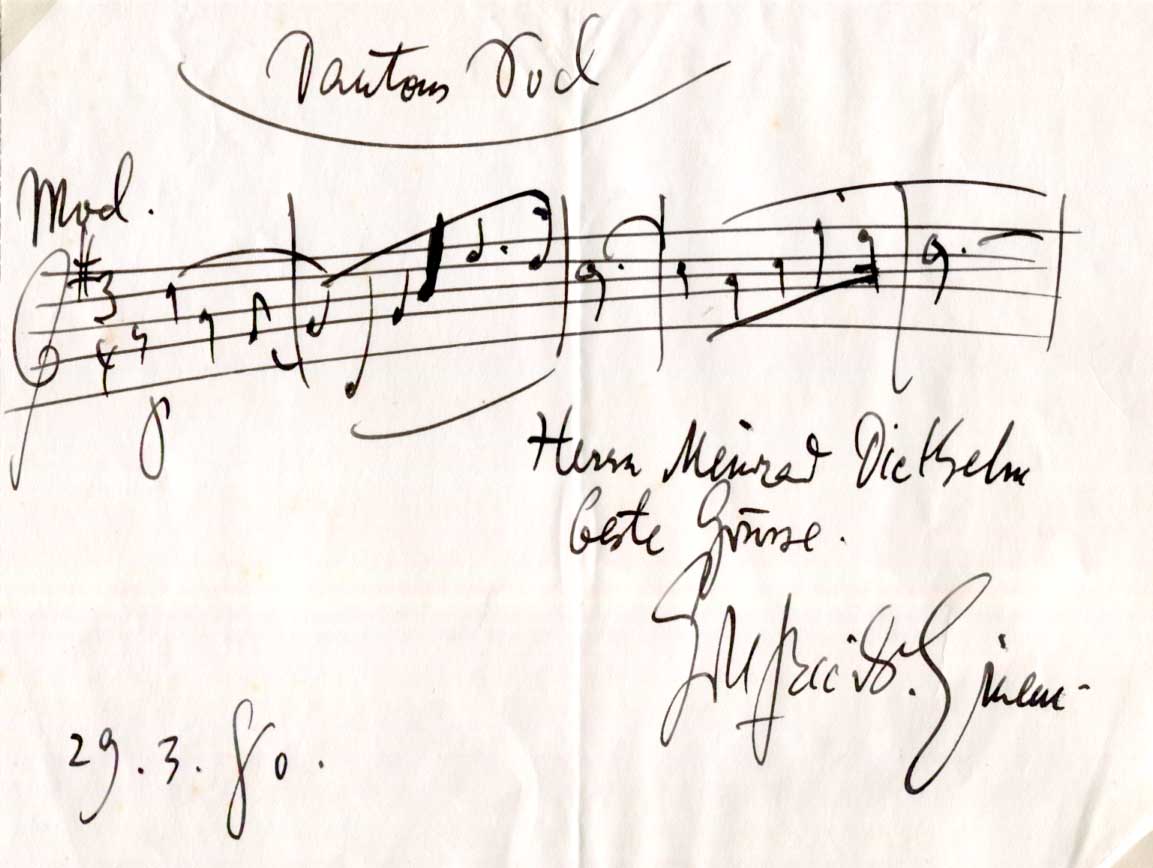 Dantons Tod
Mod.
3
4
8
Herrn Meinrad Diethelm
beste Grüsse.
Gottfried v. Einem
29.3.80.